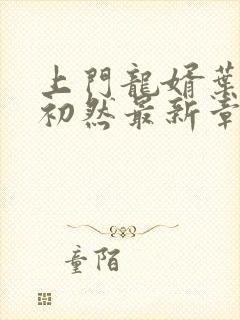 上門龍婿葉
初然最新章
童陌